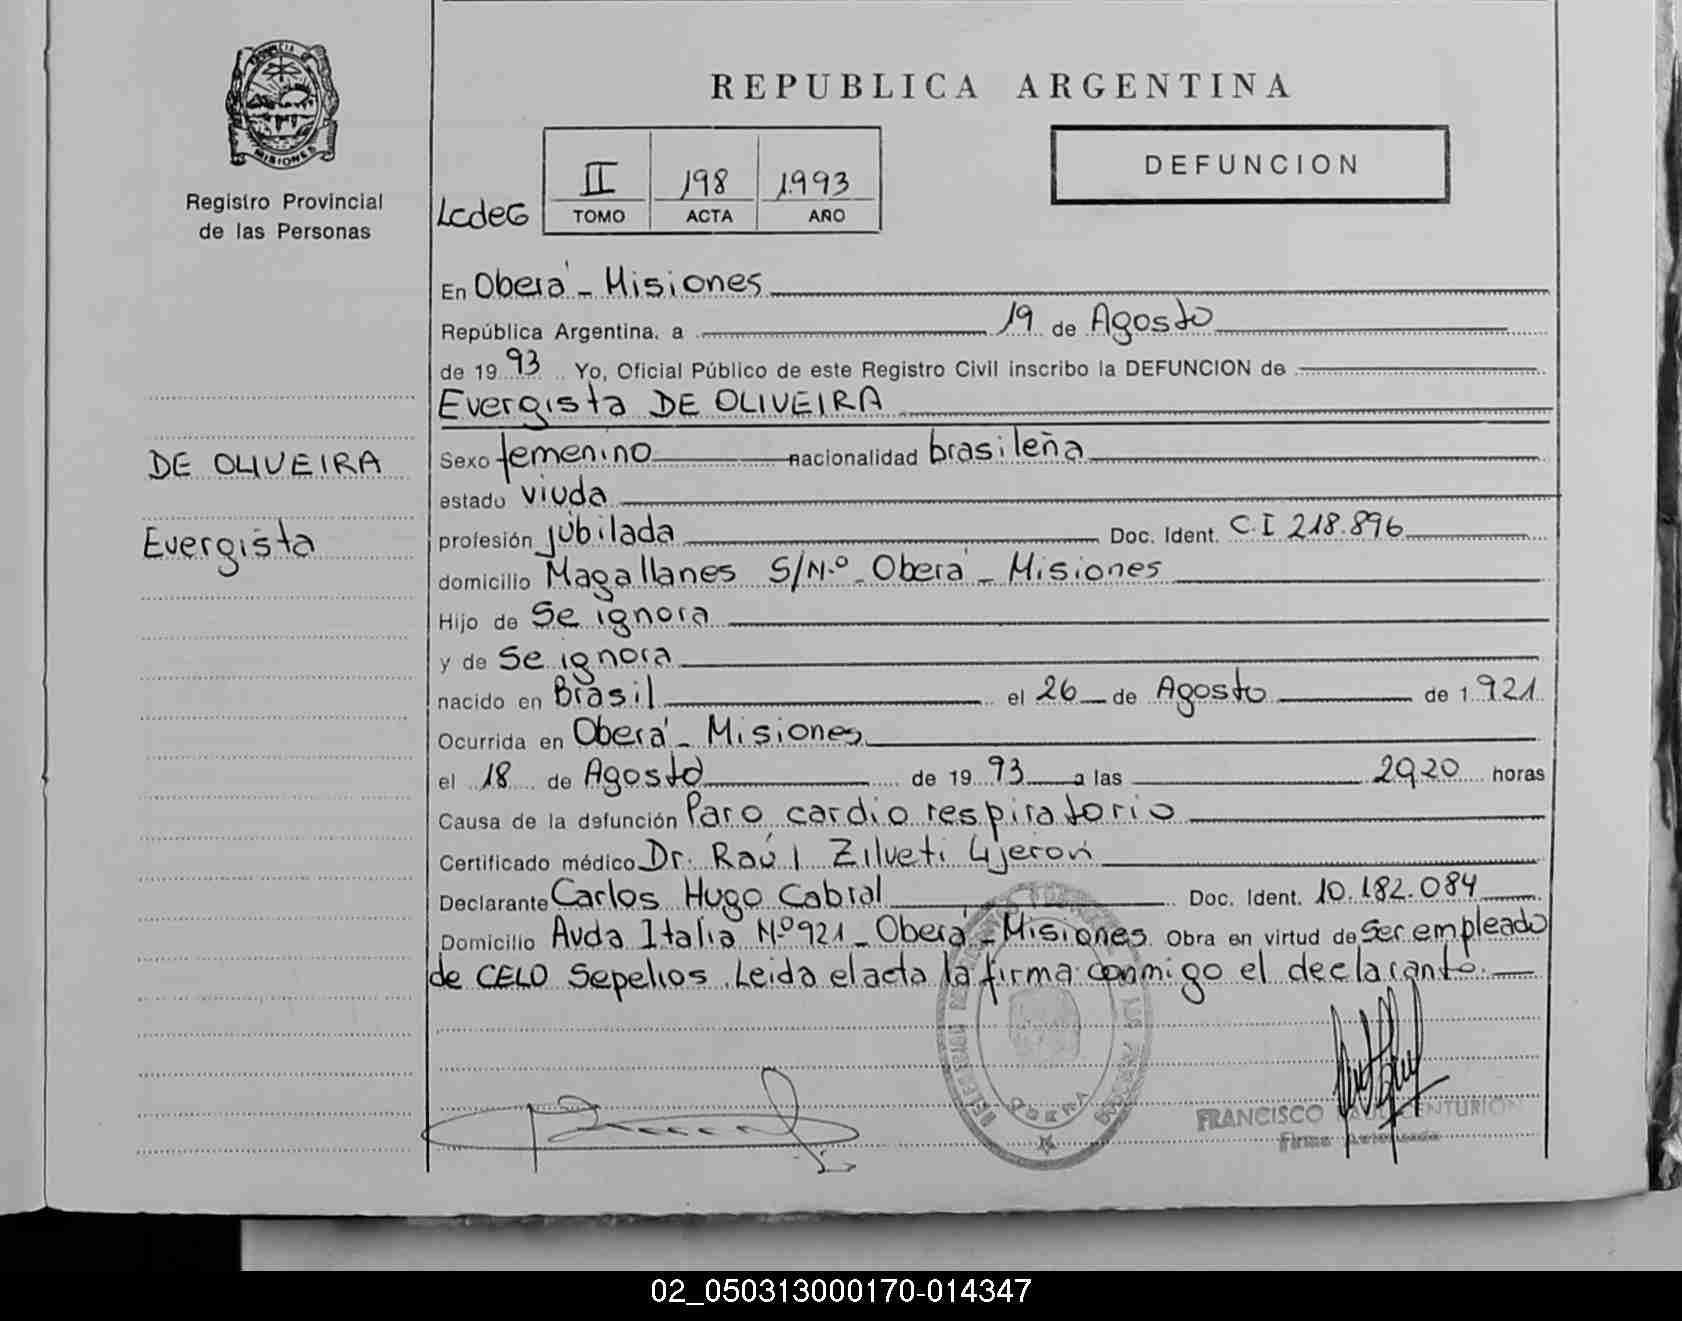 PROVINCIA DE
MISIONES
Registro Provincial
de las Personas
DE OLIVEIRA
Evergista
REPUBLICA ARGENTINA
LcdeG
II 198 1993
TOMO ACTA AÑO
DEFUNCION
En Oberá - Misiones
República Argentina, a 19 de Agosto
de 1993 Yo, Oficial Público de este Registro Civil inscribo la DEFUNCION de
Evergista DE OLIVEIRA
Sexo femenino nacionalidad brasileña
estado viuda
profesión jubilada Doc. Ident. C.I 218.896
domicilio Magallanes S/N.º - Oberá - Misiones
Hijo de Se ignora
y de Se ignora
nacido en Brasil el 26 de Agosto de 1.921
Ocurrida en Oberá - Misiones
el 18 de Agosto de 1993 a las 20,20 horas
Causa de la defunción Paro cardio respiratorio
Certificado médico Dr. Raúl Zilveti
Declarante Carlos Hugo Cabral Doc. Ident. 10.182.084
Domicilio Avda Italia N.º 921 - Oberá - Misiones Obra en virtud de Ser empleado
de CELO Sepelios. Leida el acta la firma conmigo el declarante.
OBERA
FRANCISCO CENTURION
Firma Autorizada
02_050313000170-014347